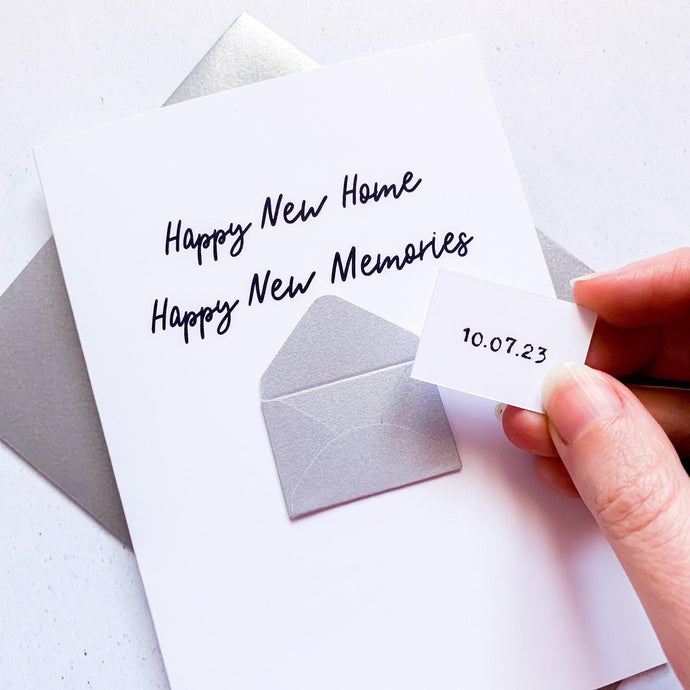 Happy New Home
Happy New Memories
10.07.23